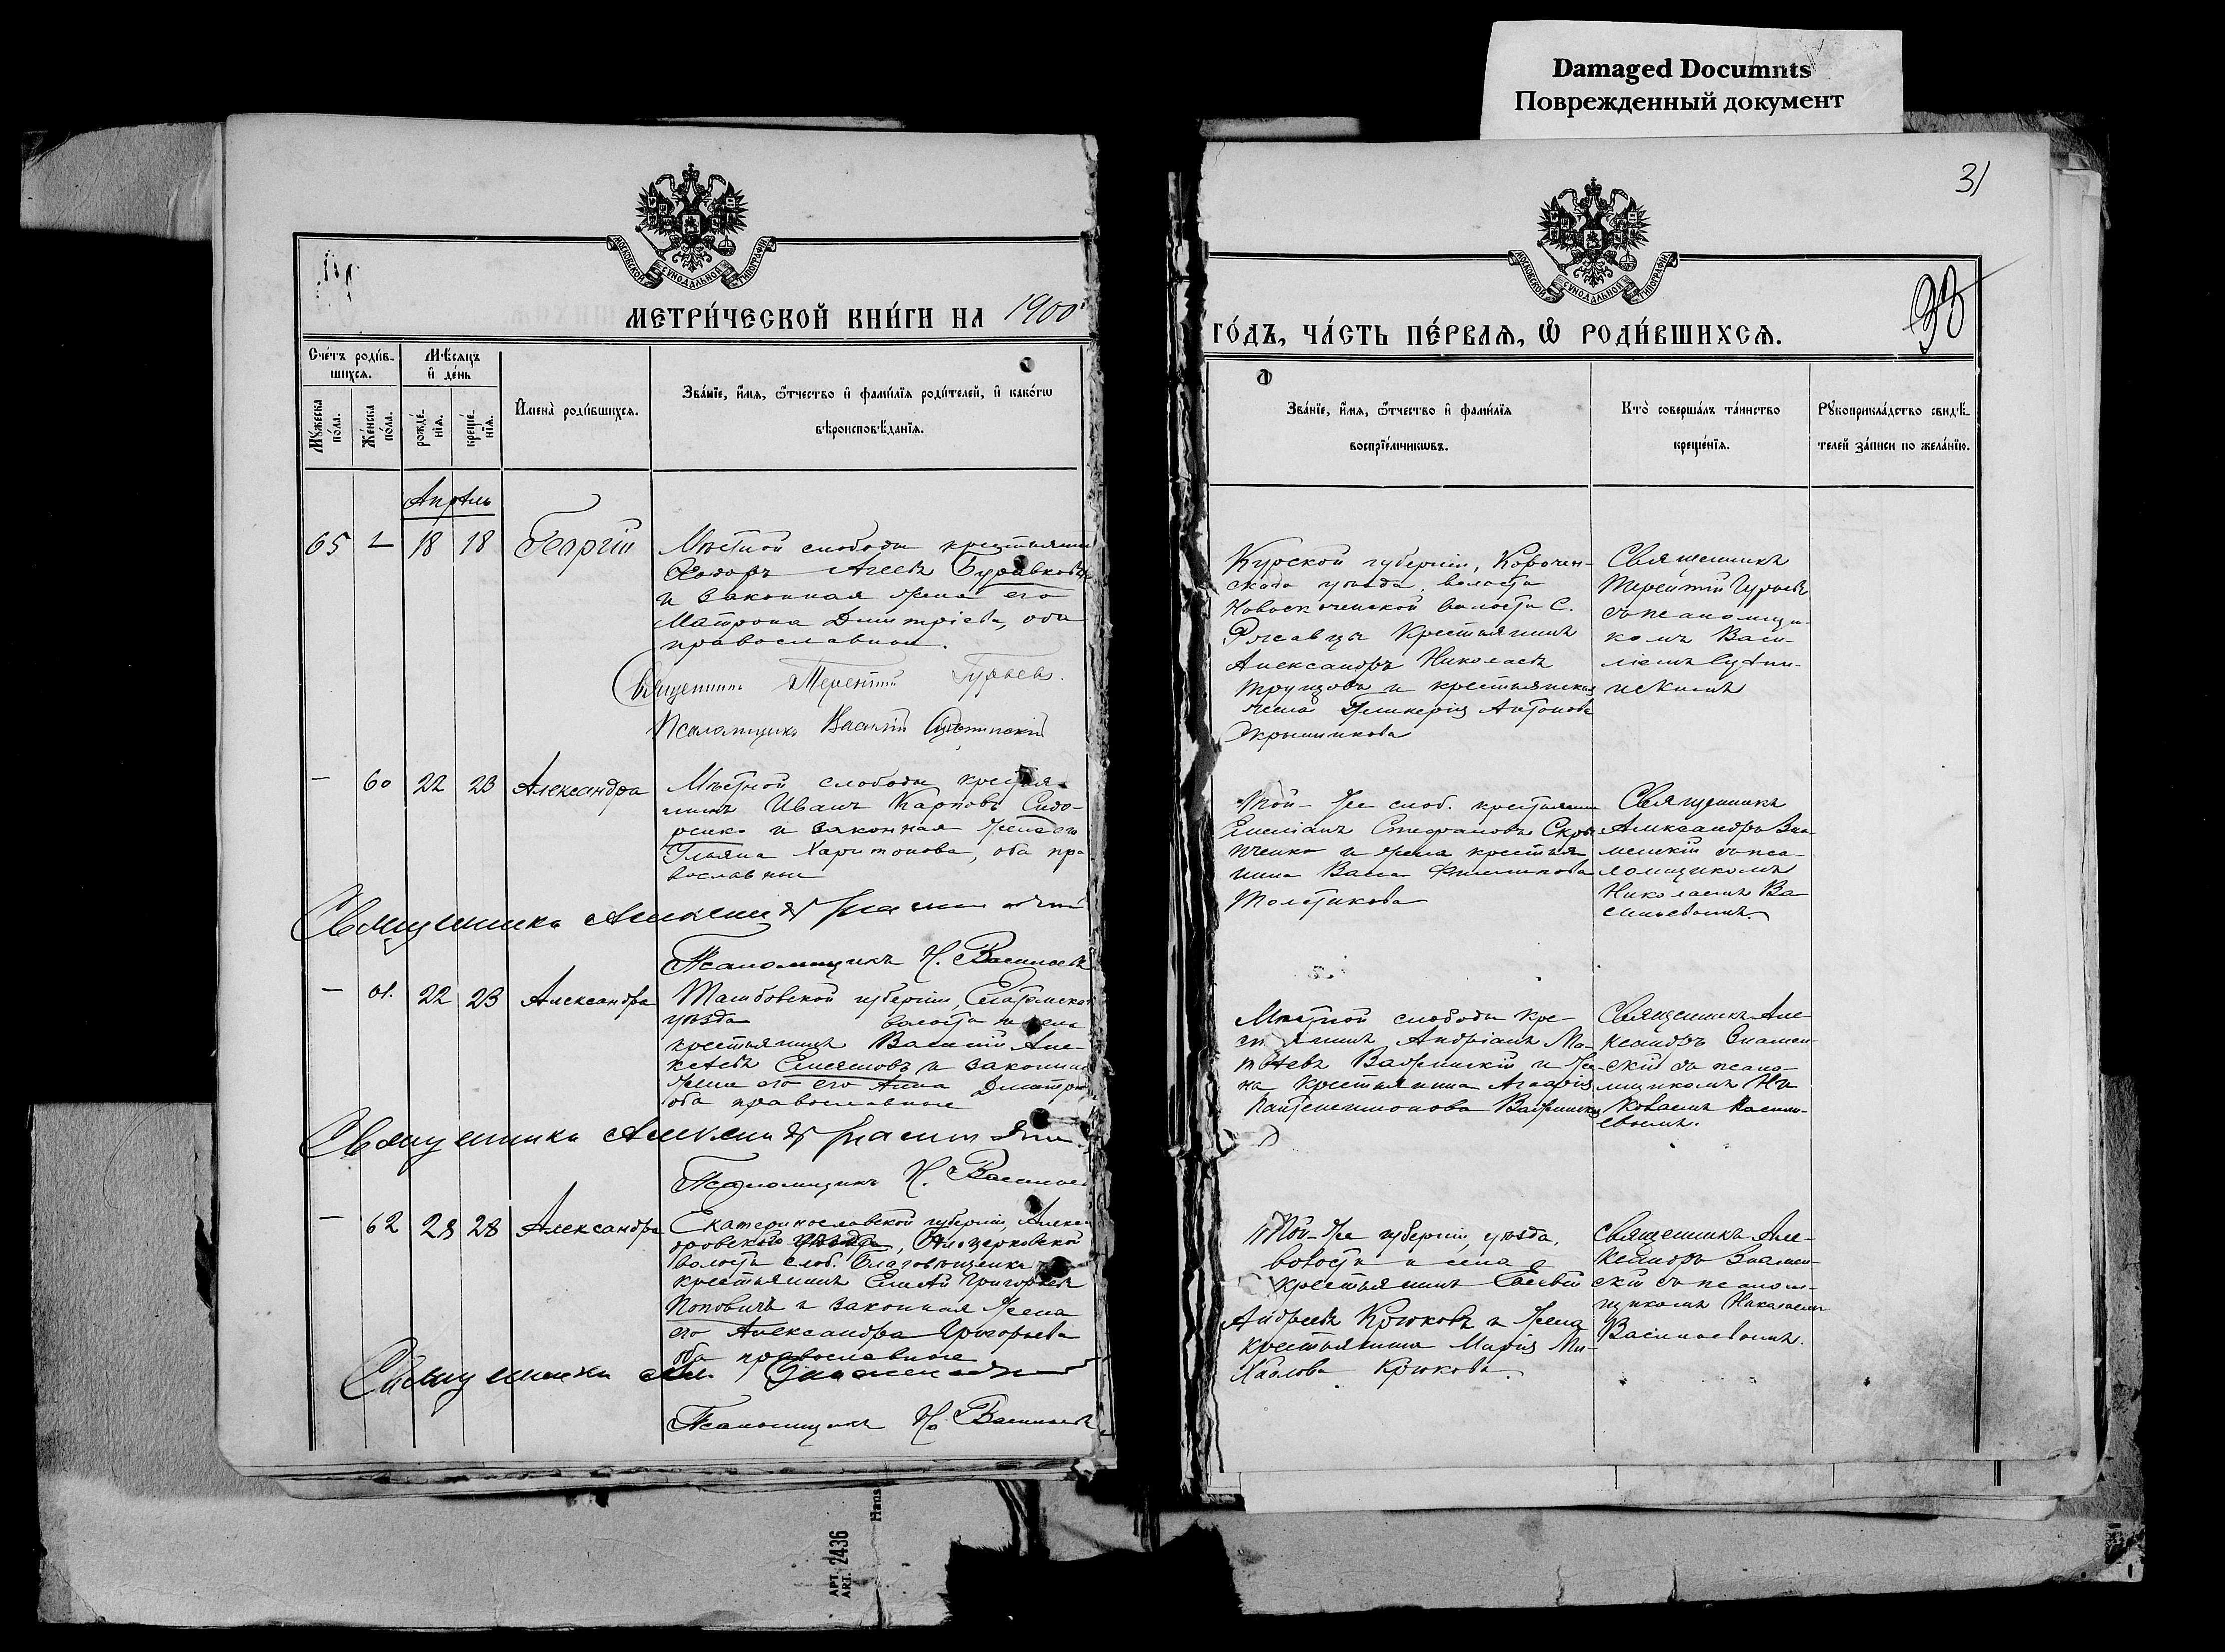 Damaged Documnts
Поврежденный документ
31
МОСКОВСКОЙ СѴНОДАЛЬНОЙ ТИПОГРАФІИ
МОСКОВСКОЙ СѴНОДАЛЬНОЙ ТИПОГРАФІИ
МЕТРИ́ЧЕСКОЙ КНИ́ГИ НА 1900
ГО́ДЪ, ЧА́СТЬ ПЕ́РВАЯ, Ѡ РОДИ́ВШИХСЯ.
Сче́тъ роди́в-
шихся.
Мѣсяцъ
и де́нь
Му́жеска по́ла.
Же́нска по́ла.
рожде́-
нія.
креще́-
нія.
Имена̀ роди́вшихся.
Зва́ніе, и́мя, ѿтчество и фами́лія роди́телей, и како́гѡ
вѣроисповѣ́данія.
Зва́ніе, и́мя, ѿтчество и фами́лія
воспріе́мникѡвъ.
Кто̀ соверша́лъ та́инство
креще́нія.
Рꙋкоприкла́дство свидѣ́-
телей за́писи по жела́нію.
Апрѣль
65 18 18 Георгій
Мѣстной слободы крестьянинъ
Ѳеодоръ Агеевъ
и законная жена его
Матрона Дмитріева, оба
православные.
Священникъ Терентій Гурьевъ.
Псаломщикъ Василій
Курской губерніи, Корочан-
скаго уѣзда, волости
волости с.
крестьянинъ
Александръ Николаевъ
и крестьянская
жена Гликерія Антонова
Священникъ
Терентій Гурьевъ
съ псаломщи-
комъ Васи-
ліемъ
— 60 22 23 Александра
Мѣстной слободы крестья-
нинъ Иванъ Карповъ Сидо-
ренко и законная жена его
Ульяна Харитонова, оба пра-
вославные
Священникъ
Псаломщикъ Н. Васильевъ
Той-же слоб. крестьянинъ
Емеліанъ Стефановъ
и жена крестья-
нина Васса Филиппова
Толстикова
Священникъ
Александръ Зна-
менскій съ пса-
ломщикомъ
Николаемъ Ва
сильевымъ.
— 61. 22 23 Александра
Тамбовской губерніи, Елатомскаго
уѣзда волости и села
крестьянинъ Василій Але-
ксѣевъ и законная
жена его его Анна
оба православные
Священникъ
Псаломщикъ Н. Васильевъ
Мѣстной слободы кре-
стьянинъ Андріанъ Ма-
тѣевъ и же-
на крестьянина Агафія
Пантелеимонова
Священникъ Але
ксандръ Знамен-
скій съ псало-
мщикомъ Ни
колаемъ Василь-
евымъ.
— 62 28 28 Александра
Екатеринославской губерніи, Алекса
дровскаго уѣзда,
волости слоб. Благовѣщенка
крестьянинъ Елисей Григорьевъ
Поповичъ и законная жена
его Александра Григорьева
оба православные
Священникъ Ал. Знаменскій
Псаломщикъ Н. Васильевъ
Той-же губерніи, уѣзда,
волости и села
крестьянинъ Евсевій
Андреевъ Крюковъ и жена
крестьянина Марія Ми-
хайлова Крюкова.
Священникъ Але-
ксандръ Знамен-
скій съ псалом-
щикомъ Николаемъ
Васильевымъ.
АРТ. 2436
ART.
Haus